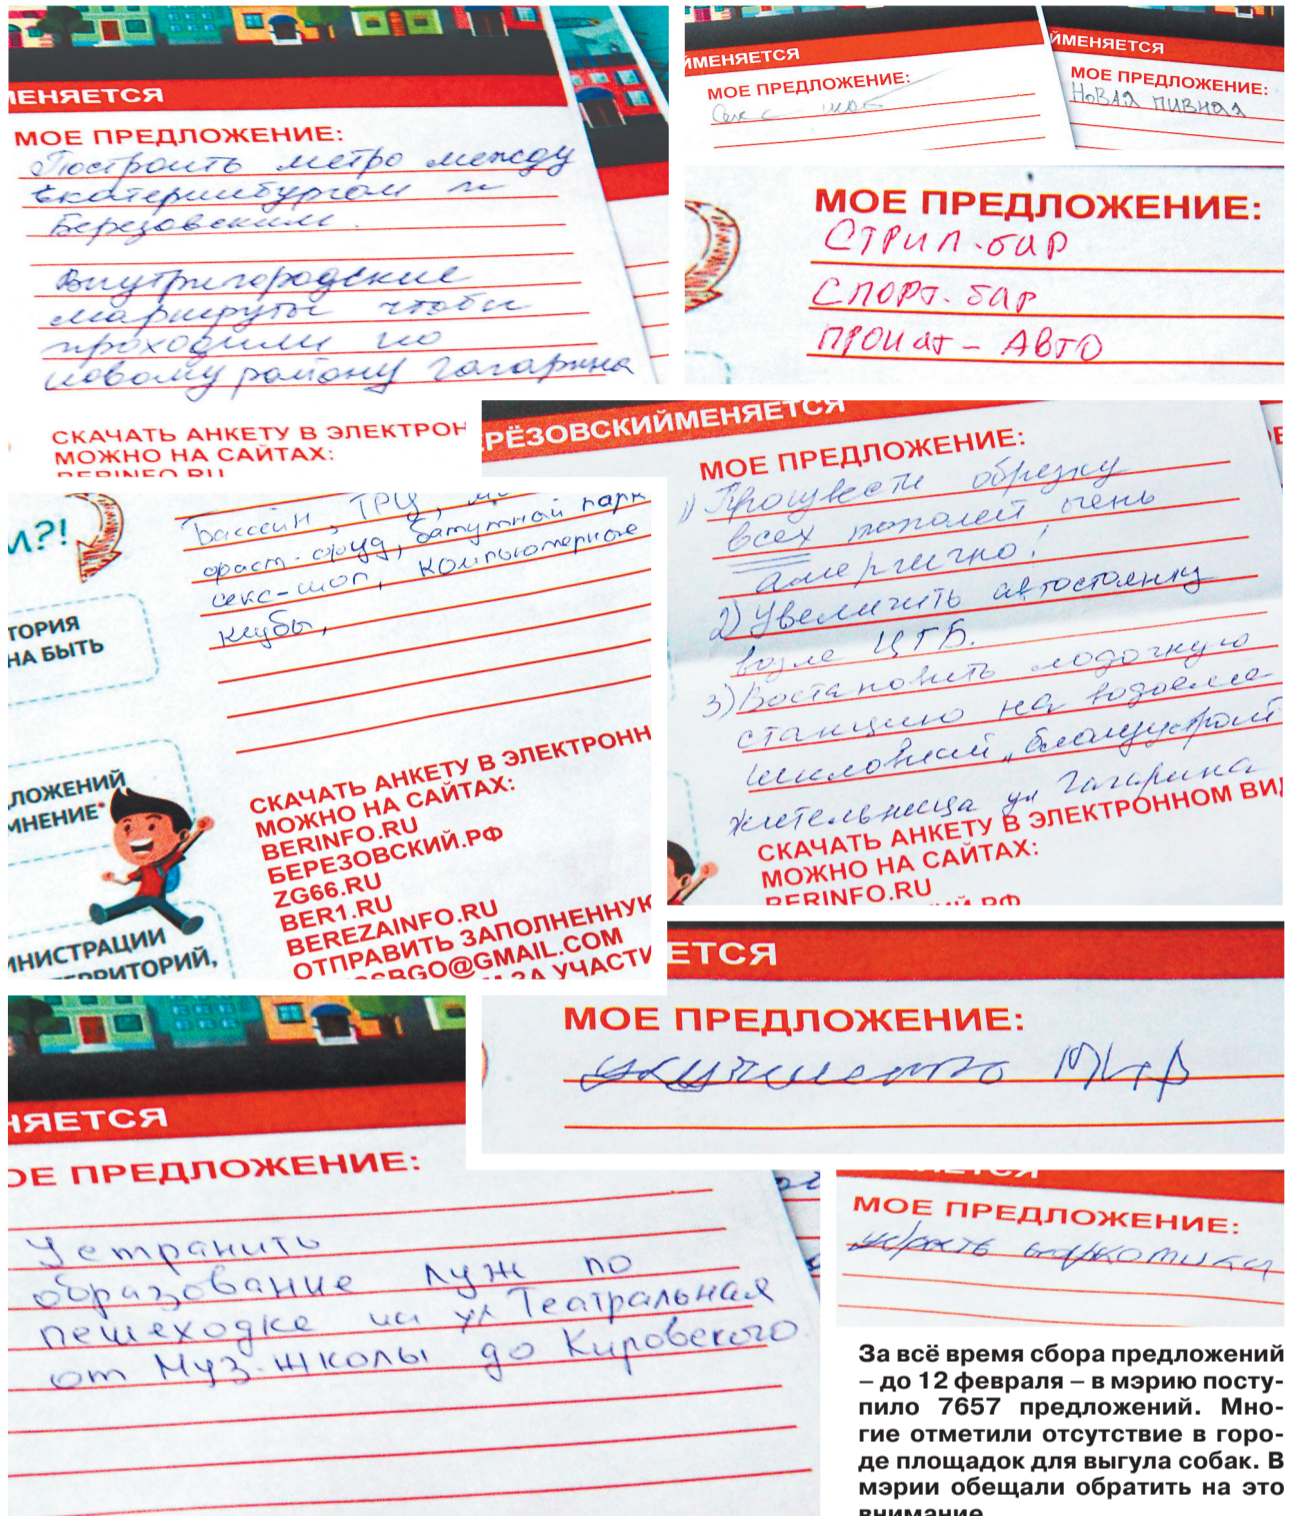 МЕНЯЕТСЯ
МОЕ ПРЕДЛОЖЕНИЕ:
Построить метро между
Екатеринбургом и
Березовским.
Внутригородские
маршруты чтобы
проходили по
новому району Гагарина
СКАЧАТЬ АНКЕТУ В ЭЛЕКТРОН
МОЖНО НА САЙТАХ:
BERINFO.RU
ЙМЕНЯЕТСЯ
МОЕ ПРЕДЛОЖЕНИЕ:
Секс - шоп
ЙМЕНЯЕТСЯ
МОЕ ПРЕДЛОЖЕНИЕ:
НОВАЯ ПИВНАЯ
МОЕ ПРЕДЛОЖЕНИЕ:
СТРИП-бар
СПОРТ-бар
ПРОКАТ - АВТО
РЁЗОВСКИЙМЕНЯЕТСЯ
МОЕ ПРЕДЛОЖЕНИЕ:
1) Произвести обрезку
всех тополей очень
алергично!
2) Увеличить автостоянку
возле ЦГБ.
3) Востановить лодочную
станцию на водоеме
шиловский, благоустроит
жительница ул Гагарина
СКАЧАТЬ АНКЕТУ В ЭЛЕКТРОННОМ ВИД
МОЖНО НА САЙТАХ:
BERINFO.RU
РФ
М?!
Бассейн, ТРЦ,
фаст-фуд, батутный парк
секс-шоп, компьютерные
клубы,
ТОРИЯ
НА БЫТЬ
ЛОЖЕНИЙ
МНЕНИЕ*
ИНИСТРАЦИИ
ТЕРРИТОРИЙ,
СКАЧАТЬ АНКЕТУ В ЭЛЕКТРОНН
МОЖНО НА САЙТАХ:
BERINFO.RU
БЕРЕЗОВСКИЙ.РФ
ZG66.RU
BER1.RU
BEREZAINFO.RU
ОТПРАВИТЬ ЗАПОЛНЕННУЮ
SBGO@GMAIL.COM
ЗА УЧАСТИ
ЕТСЯ
МОЕ ПРЕДЛОЖЕНИЕ:
МИР
НЯЕТСЯ
ОЕ ПРЕДЛОЖЕНИЕ:
Устранить
образование луж по
пешеходке на ул Театральная
от Муз.школы до Кировского.
МОЕ ПРЕДЛОЖЕНИЕ:
убрать наркотики
За всё время сбора предложений
– до 12 февраля – в мэрию посту-
пило 7657 предложений. Мно-
гие отметили отсутствие в горо-
де площадок для выгула собак. В
мэрии обещали обратить на это
внимание